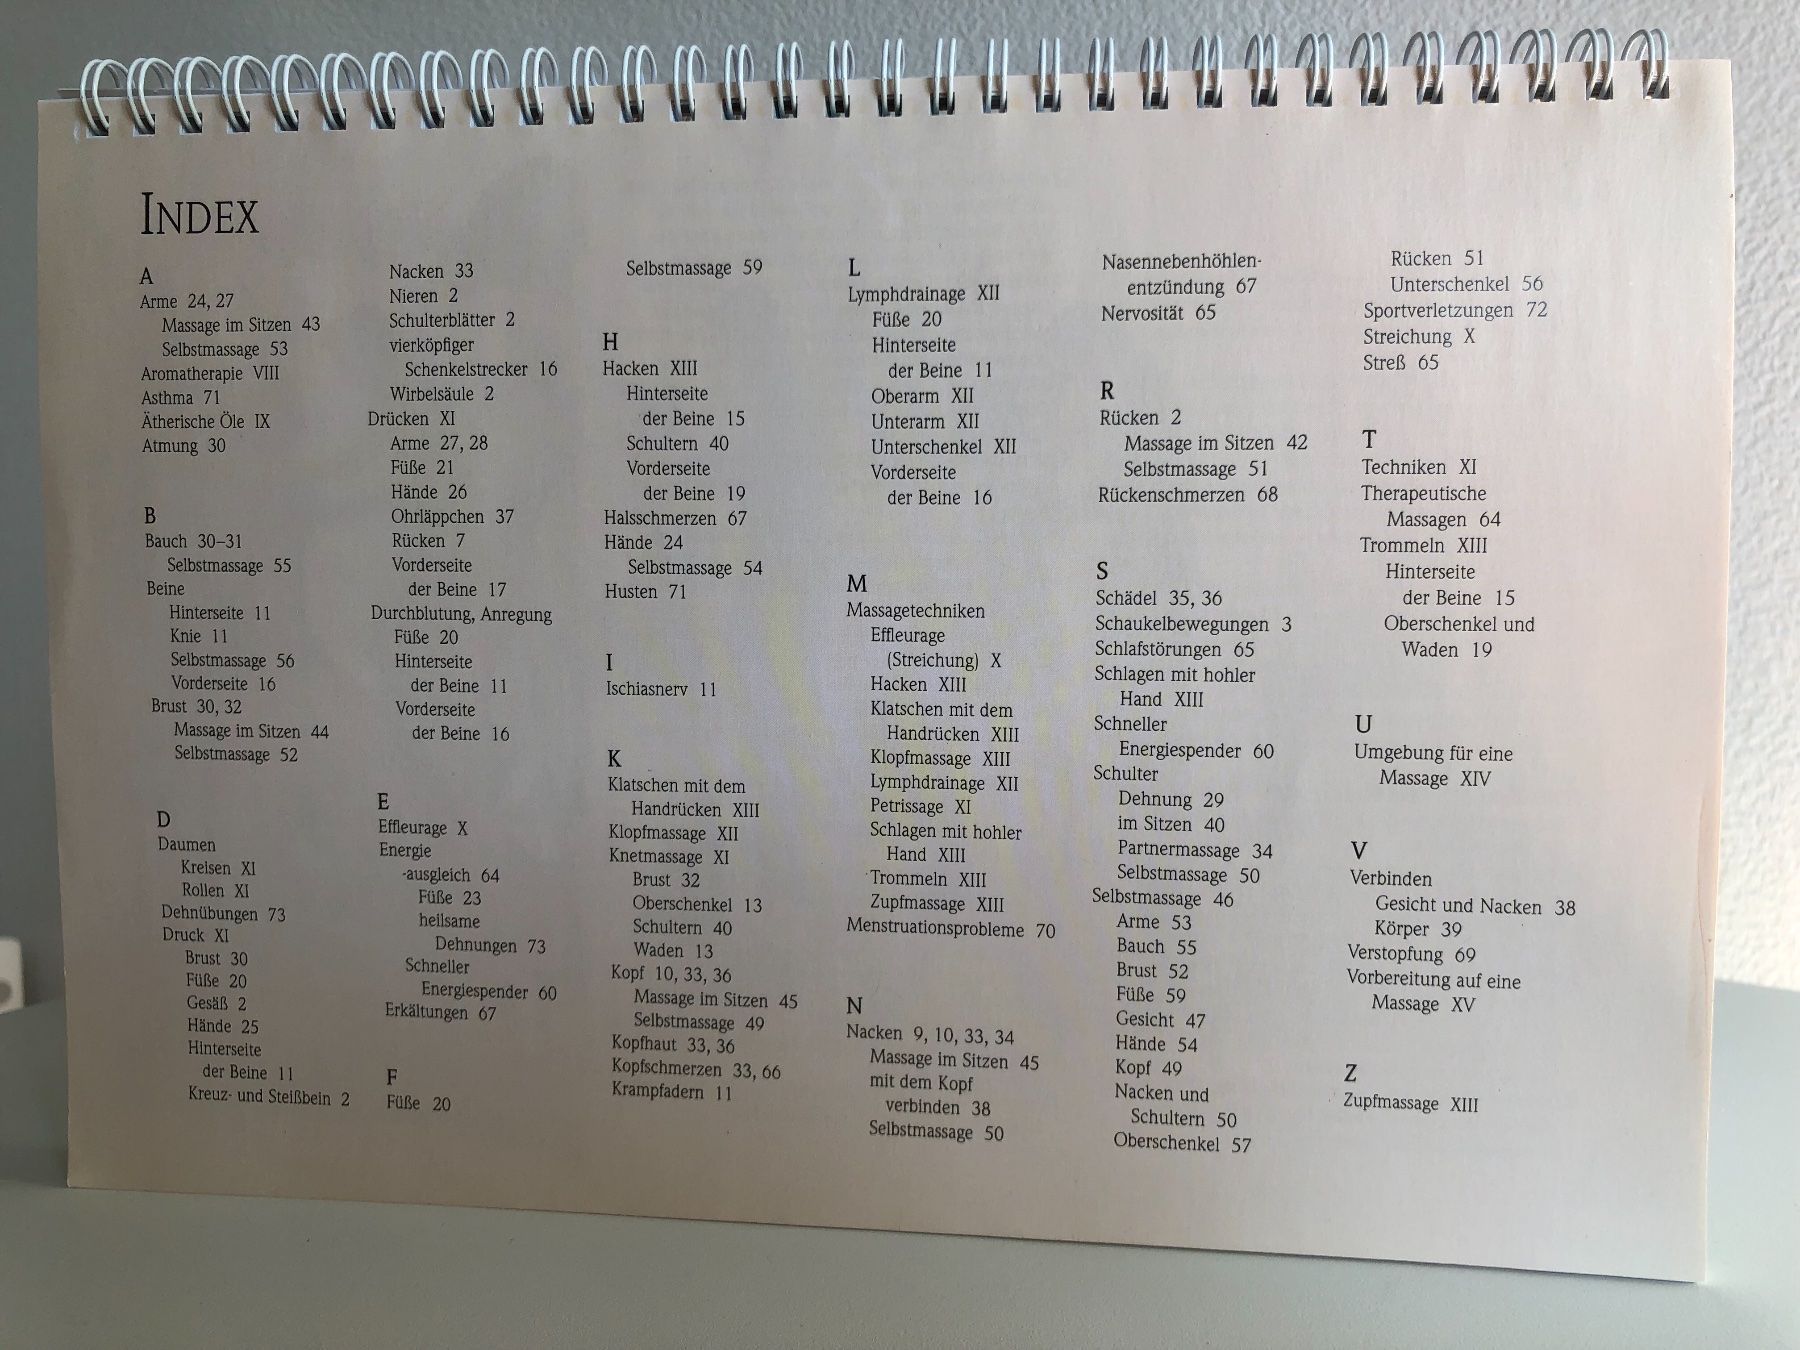 INDEX
A
Arme 24, 27
Massage im Sitzen 43
Selbstmassage 53
Aromatherapie VIII
Asthma 71
Ätherische Öle IX
Atmung 30
B
Bauch 30–31
Selbstmassage 55
Beine
Hinterseite 11
Knie 11
Selbstmassage 56
Vorderseite 16
Brust 30, 32
Massage im Sitzen 44
Selbstmassage 52
D
Daumen
Kreisen XI
Rollen XI
Dehnübungen 73
Druck XI
Brust 30
Füße 20
Gesäß 2
Hände 25
Hinterseite
der Beine 11
Kreuz- und Steißbein 2
Nacken 33
Nieren 2
Schulterblätter 2
vierköpfiger
Schenkelstrecker 16
Wirbelsäule 2
Drücken XI
Arme 27, 28
Füße 21
Hände 26
Ohrläppchen 37
Rücken 7
Vorderseite
der Beine 17
Durchblutung, Anregung
Füße 20
Hinterseite
der Beine 11
Vorderseite
der Beine 16
E
Effleurage X
Energie
-ausgleich 64
Füße 23
heilsame
Dehnungen 73
Schneller
Energiespender 60
Erkältungen 67
F
Füße 20
Selbstmassage 59
H
Hacken XIII
Hinterseite
der Beine 15
Schultern 40
Vorderseite
der Beine 19
Halsschmerzen 67
Hände 24
Selbstmassage 54
Husten 71
I
Ischiasnerv 11
K
Klatschen mit dem
Handrücken XIII
Klopfmassage XII
Knetmassage XI
Brust 32
Oberschenkel 13
Schultern 40
Waden 13
Kopf 10, 33, 36
Massage im Sitzen 45
Selbstmassage 49
Kopfhaut 33, 36
Kopfschmerzen 33, 66
Krampfadern 11
L
Lymphdrainage XII
Füße 20
Hinterseite
der Beine 11
Oberarm XII
Unterarm XII
Unterschenkel XII
Vorderseite
der Beine 16
M
Massagetechniken
Effleurage
(Streichung) X
Hacken XIII
Klatschen mit dem
Handrücken XIII
Klopfmassage XIII
Lymphdrainage XII
Petrissage XI
Schlagen mit hohler
Hand XIII
Trommeln XIII
Zupfmassage XIII
Menstruationsprobleme 70
N
Nacken 9, 10, 33, 34
Massage im Sitzen 45
mit dem Kopf
verbinden 38
Selbstmassage 50
Nasennebenhöhlen-
entzündung 67
Nervosität 65
R
Rücken 2
Massage im Sitzen 42
Selbstmassage 51
Rückenschmerzen 68
S
Schädel 35, 36
Schaukelbewegungen 3
Schlafstörungen 65
Schlagen mit hohler
Hand XIII
Schneller
Energiespender 60
Schulter
Dehnung 29
im Sitzen 40
Partnermassage 34
Selbstmassage 50
Selbstmassage 46
Arme 53
Bauch 55
Brust 52
Füße 59
Gesicht 47
Hände 54
Kopf 49
Nacken und
Schultern 50
Oberschenkel 57
Rücken 51
Unterschenkel 56
Sportverletzungen 72
Streichung X
Streß 65
T
Techniken XI
Therapeutische
Massagen 64
Trommeln XIII
Hinterseite
der Beine 15
Oberschenkel und
Waden 19
U
Umgebung für eine
Massage XIV
V
Verbinden
Gesicht und Nacken 38
Körper 39
Verstopfung 69
Vorbereitung auf eine
Massage XV
Z
Zupfmassage XIII